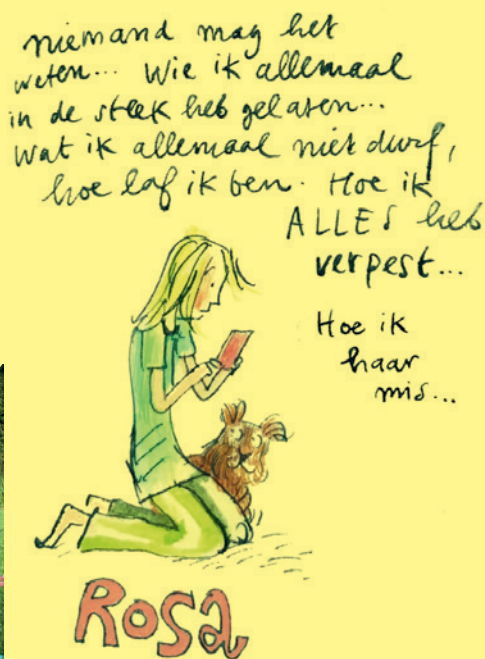 niemand mag het
weten... Wie ik allemaal
in de steek heb gelaten...
Wat ik allemaal niet durf,
hoe laf ik ben. Hoe ik
ALLES heb
verpest...
Hoe ik
haar
mis...
Rosa